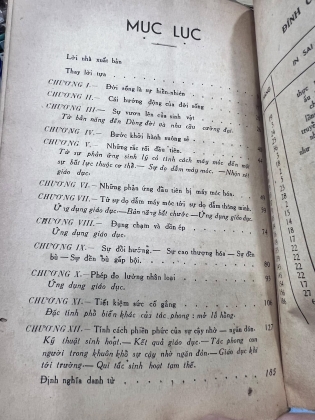 MỤC LỤC
Lời nhà xuất bản
Thay lời tựa
CHƯƠNG I.— Đời sống là sự hiển-nhiên
CHƯƠNG II.— Cái hướng động của đời sống
CHƯƠNG III.— Sự vươn lên của sinh vật
Từ bản năng đến Dũng đời và nhu cầu cương đạt.
CHƯƠNG IV.— Bước khởi hành mường sẽ
CHƯƠNG V.— Những rắc rối đầu tiên.
Từ sự phản ứng sinh lý có tính cách máy móc đến một
sự bất lực thuộc cơ thể.— Sự dọ dẫm máy móc.— Nhận xét
giáo dục.
CHƯƠNG VI.— Những phản ứng đầu tiên bị máy móc hóa.
CHƯƠNG VII.— Từ sự dọ dẫm máy móc tới sự dọ dẫm thông minh.
Ứng dụng giáo dục.— Bản năng bắt chước.— Ứng dụng giáo dục.
CHƯƠNG VIII.— Đụng chạm và dồn ép 74
Ứng dụng giáo dục.
CHƯƠNG IX.— Sự đổi hướng.— Sự cao thượng hóa — Sự đền
bù — Sự đền bù gấp bội. 80
CHƯƠNG X.— Phép đo lường nhân loại 93
Ứng dụng giáo dục.
CHƯƠNG XI.— Tiết kiệm sức cố gắng 106
Đặc tính phổ biến khác của tác phong: mở lỗ hổng.
CHƯƠNG XII.— Tính cách phiền phức của sự cậy nhờ — ngăn đón. 127
Kỹ thuật sinh hoạt.— Kết quả giáo dục.— Tác phong con
người trong khuôn khổ sự cậy nhờ ngăn đón.— Giáo dục khí
tới trường.— Qui tắc sinh hoạt tạm thế.
Định nghĩa danh từ 185
ĐÍNH C
IN SAI